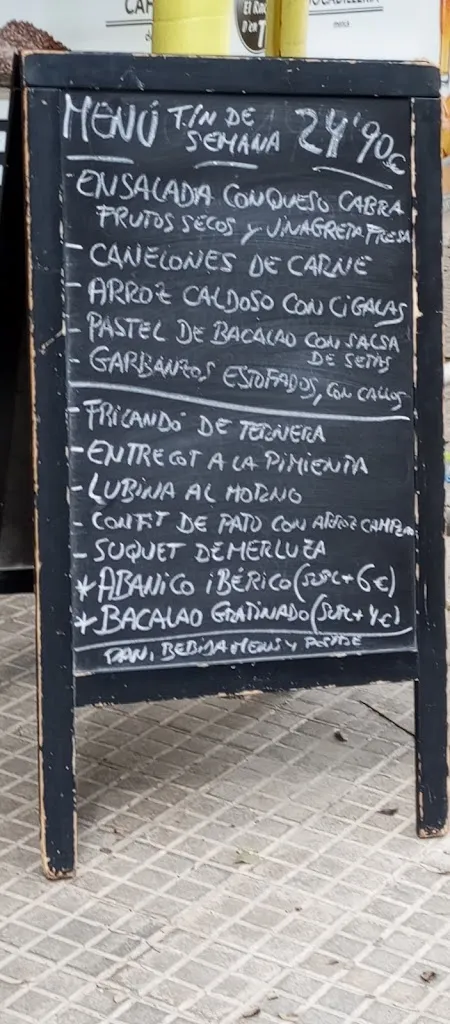 El Racó
D'en T
MENÚ FIN DE
SEMANA 24'90€
- ENSALADA CON QUESO CABRA
FRUTOS SECOS Y VINAGRETA FRESA
- CANELONES DE CARNE
- ARROZ CALDOSO CON CIGALAS
- PASTEL DE BACALAO CON SALSA
DE SETAS
- GARBANZOS ESTOFADOS, CON CALLOS
- FRICANDÓ DE TERNERA
- ENTRECOT A LA PIMIENTA
- LUBINA AL HORNO
- CONFIT DE PATO CON ARROZ
- SUQUET DE MERLUZA
* ABANICO IBÉRICO (SUPL + 6€)
* BACALAO GRATINADO (SUPL + 4€)
PAN, BEBIDA MENU Y POSTRE